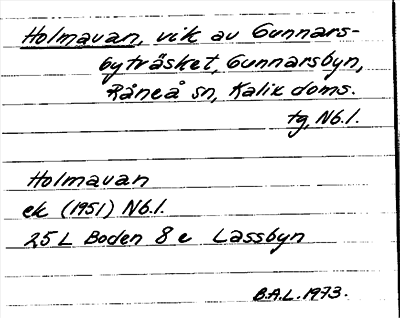 Holmavan, vik av Gunnars-
byträsket, Gunnarsbyn,
Råneå sn, Kalix doms.
tg, Nb.l.
Holmavan
ek (1951) Nb.l.
25 L Boden 8 e Lassbyn
B.A.L. 1973.